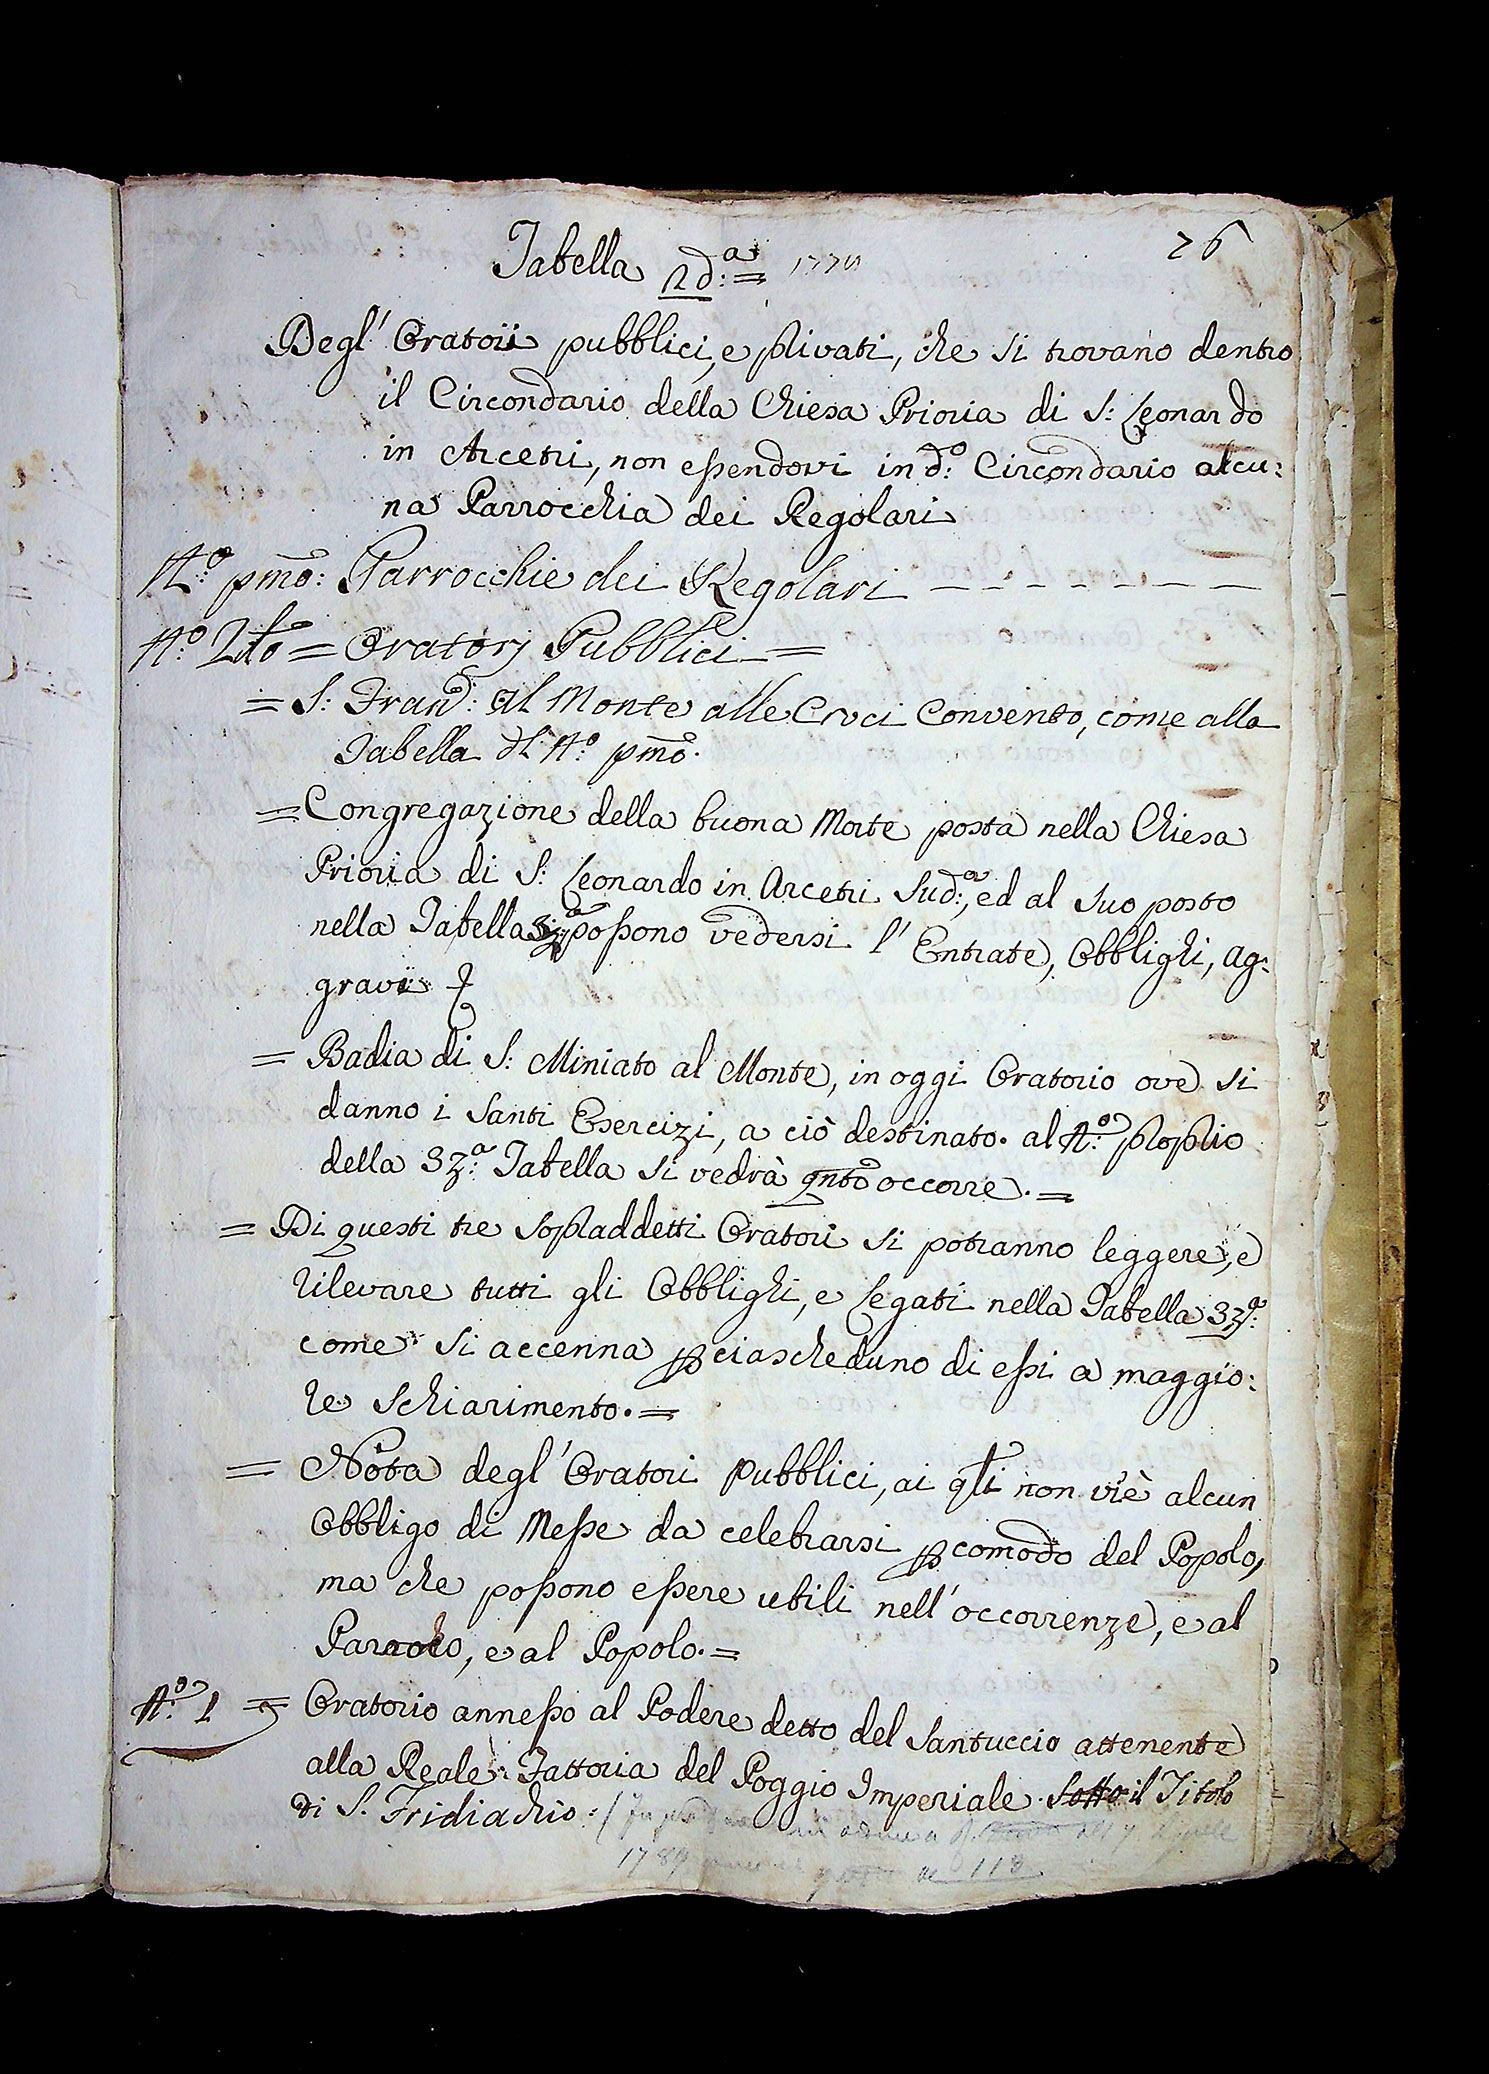 26
Tabella 2d:ª =
Degl' Oratorii pubblici, e privati, che si trovano dentro
il Circondario della Chiesa Prioria di S: Leonardo
in Arcetri, non eßendovi in d:º Circondario alcu:
na Parrocchia dei Regolari
N:º pmo: Parrocchie dei Regolari – – – – – – –
N:º 2do = Oratorj Pubblici =
= S: Franc: al Monte alle Croci Convento, come alla
Tabella di N:º pmo.
= Congregazione della buona Morte posta nella Chiesa
Prioria di S: Leonardo in Arcetri Sud:ª, ed al suo posto
nella Tabella 3z:ª poßono vedersi l' Entrate, Obblighi, Ag:
gravi
= Badia di S: Miniato al Monte, in oggi Oratorio ove si
danno i Santi Esercizi, a ciò destinato. al N:º proprio
della 3z:ª Tabella si vedrà qnto occorre. =
= Di questi tre sopraddetti Oratori si potranno leggere, e
rilevare tutti gli Obblighi, e Legati nella Tabella 3z:ª
come si accenna p ciascheduno di eßi a maggio:
re schiarimento. =
= Nota degl' Oratori pubblici, ai qli non vi è alcun
Obbligo di Meße da celebrarsi p comodo del Popolo,
ma che poßono eßere utili nell' occorrenze, e al
Parroco, e al Popolo. =
N:º 1 = Oratorio anneßo al Podere detto del Santuccio attenente
alla Reale Fattoria del Poggio Imperiale. Sotto il Titolo
di S. Fridiachio: (
1789 118